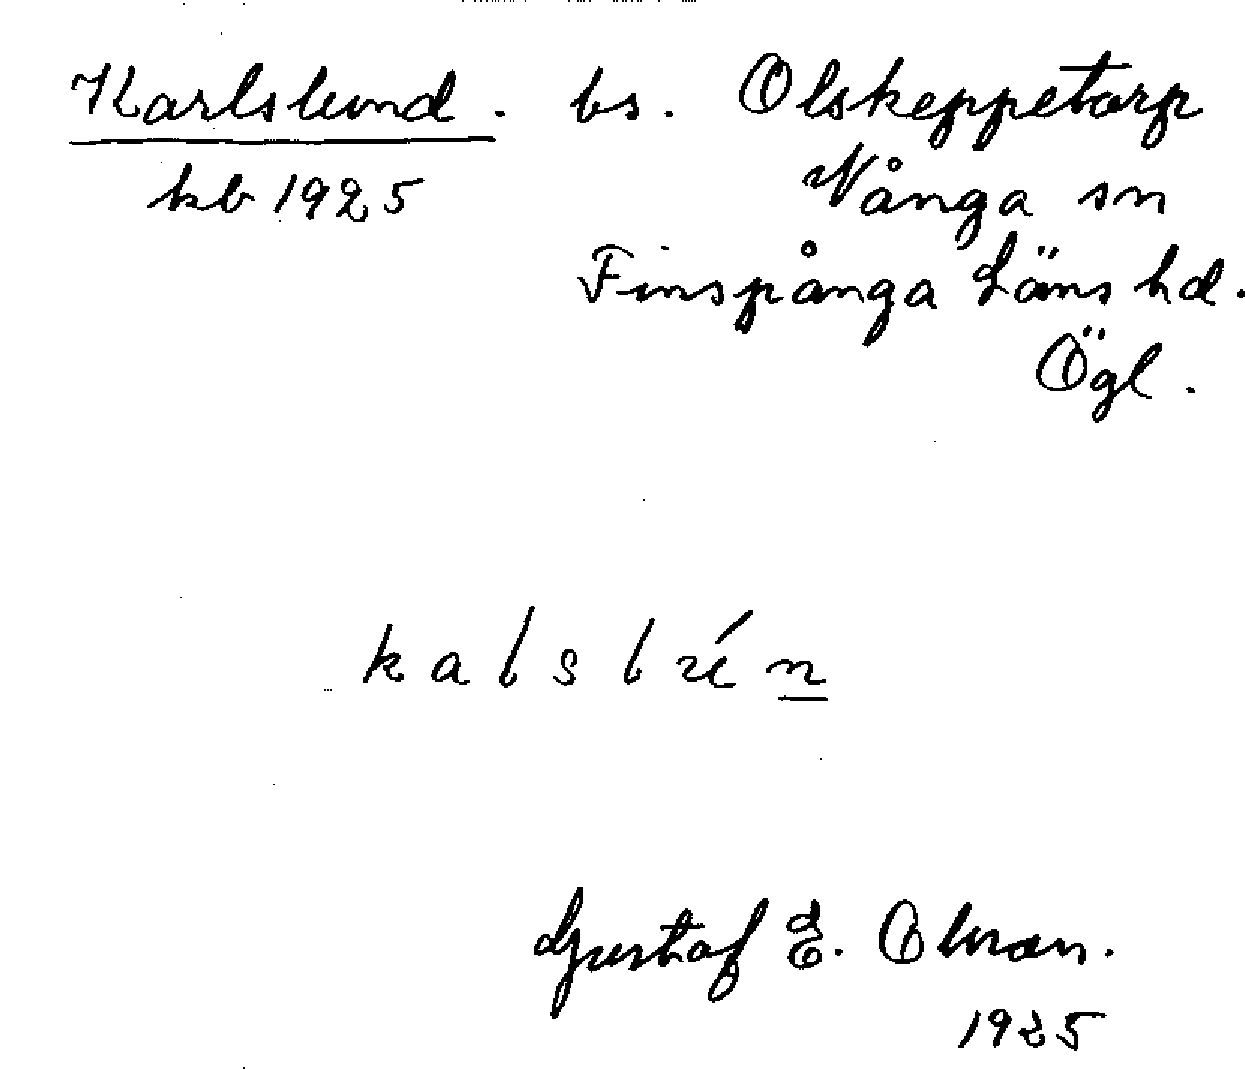 Karlslund. bs. Olskeppetorp
kb 1925 Vånga sn
Finspånga läns hd.
Ögl.
kalslún
Gustaf E. Olson.
1925